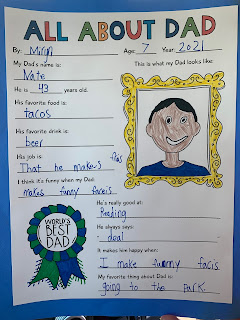 ALL ABOUT DAD
By: Miron Age: 7 Year 2021
My Dad's name is:
Nate
This is what my Dad looks like:
He is 43 years old.
His favorite food is:
tacos
His favorite drink is:
beer
His job is:
That he makes
I think it's funny when my Dad:
makes funny faceis
He's really good at:
Reeding
He always says:
deal
It makes him happy when:
I make funny facis
My favorite thing about Dad is:
going to the park.
WORLD'S
BEST
DAD